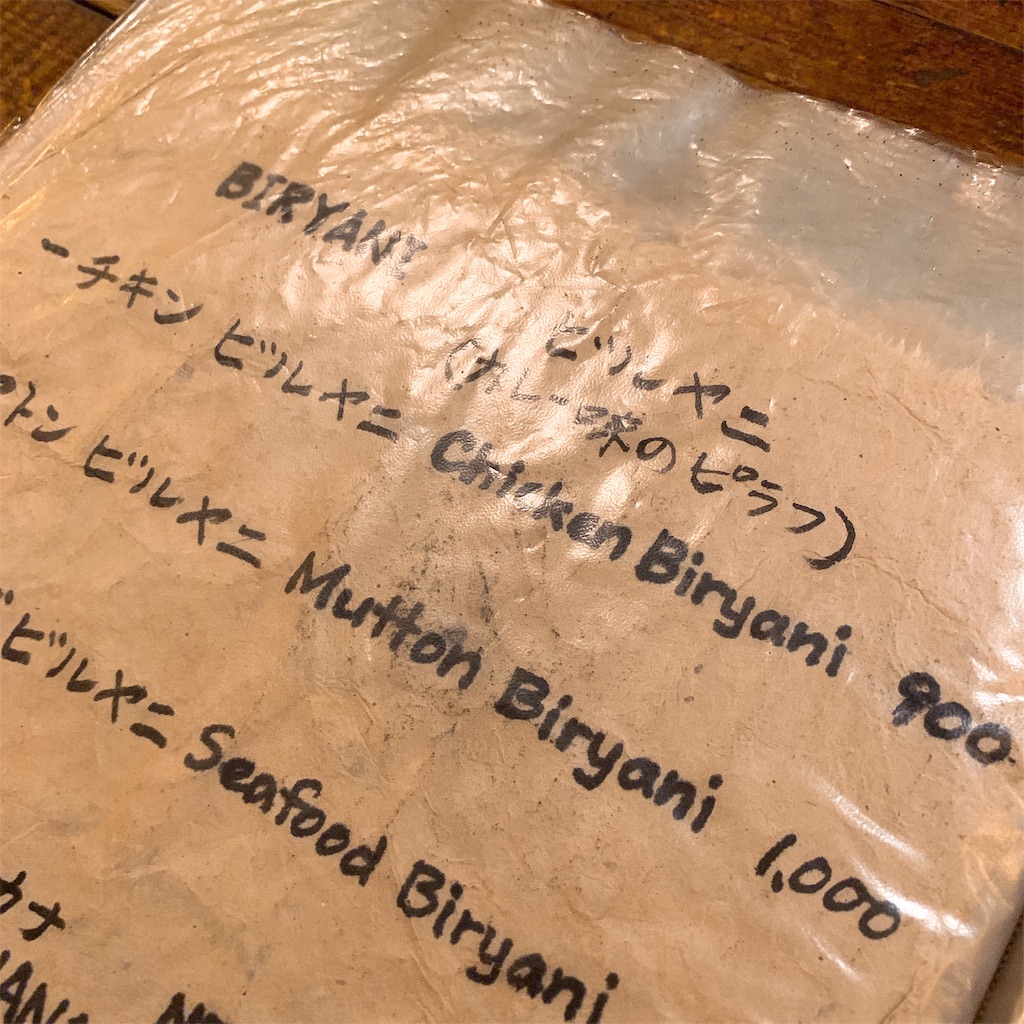 BIRYANI ビルヤニ
(カレー味のピラフ)
ーチキン ビルヤニ Chicken Biryani 900
マトン ビルヤニ Mutton Biryani 1,000
ビルヤニ Seafood Biryani
カナ